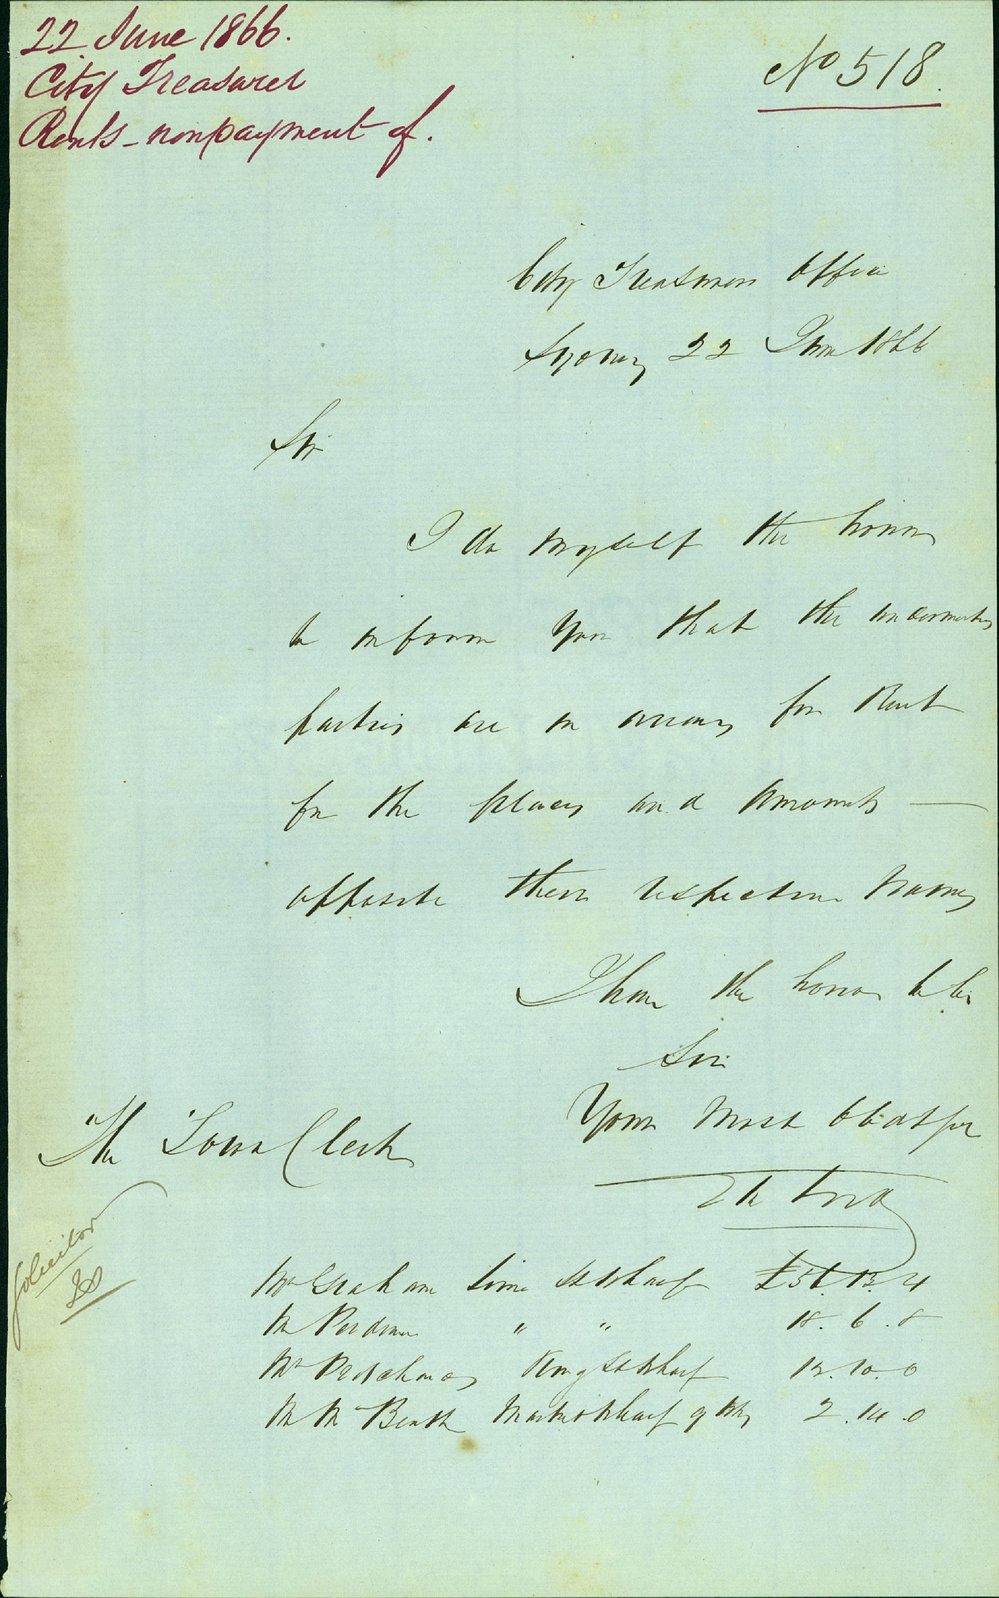 22 June 1866.
City Treasurer
Rents - nonpayment of.
No 518.
City Treasurers Office
Sydney 22 June 1866
Sir
I do myself the honor
to inform you that the undermentd
parties are in arrears for Rent
for the places and amounts —
opposite their respective names
I have the honor to be
Sir
Your most obdt ser
The Town Clerk
Solicitor
Mr Graham Lime St Wharf £51.13.4
Mr " " 18.6.8
Mr King St Wharf 12.10.0
Mr McBeath Market Wharf 9 Wks 2.14.0